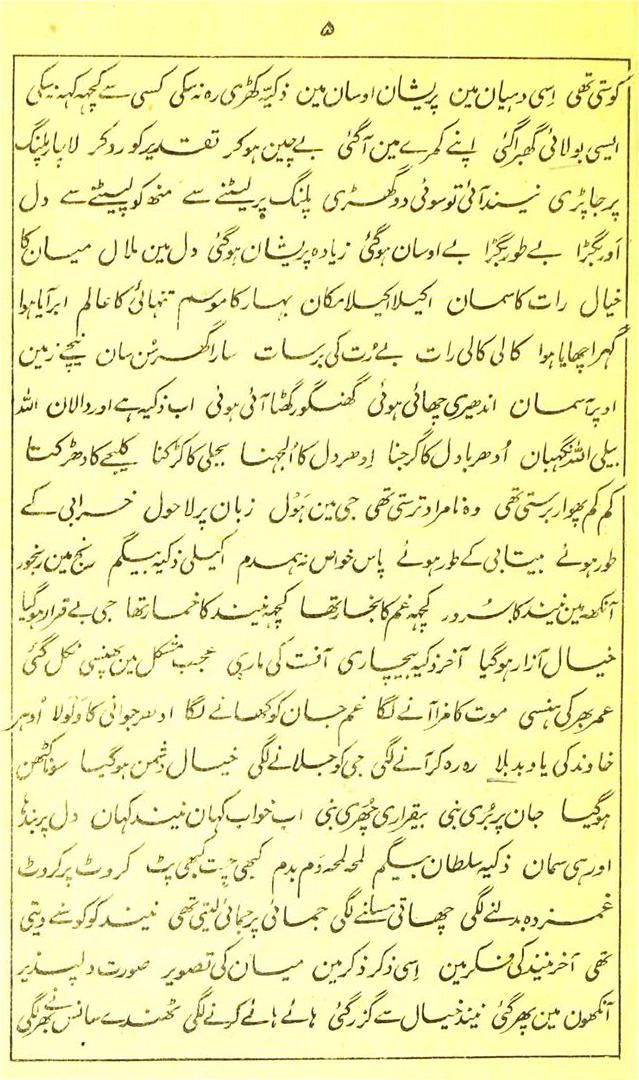 ۵
کوستی تھی اِسی دہیان مین پریشان اوسان مین ذکیہ کھڑی رہ نہ سکی کسی سے کچہہ کہہ نہ سکی
ایسی بولائی گھبراگئی اپنے کمرے مین آگئی بے چین ہوکر تقدیر کو روکر لاچار پلنگ
پر جا پڑی نیند آئی تو سوئی دو گھڑی پلنگ پر لیٹنے سے منھ کو لپیٹنے سے دل
اَور بگڑا بے طور بگڑا بے اوسان ہوگئی زیادہ پریشان ہوگئی دل مین ملال میان کا
خیال رات کا سمان اکیلا اکیلا مکان بہار کا موسم تنہائی کا عالم ابر آیا ہوا
گہرا چھایا ہوا کالی کالی رات بے رُت کی برسات سارا گھر سُن سان نیچے زمین
اوپر آسمان اندھیری چھائی ہوئی گھنگور گھٹا آئی ہوئی اب ذکیہ ہے اور دالان اللہ
بیلی اللہ نگہبان اُدھر بادل کا گرجنا اِدھر دل کا اُلجہنا بجلی کا کڑکنا کلیجے کا دھڑکنا
کم کم پھوار برستی تھی وہ نامراد ترستی تھی جی مین ہَول زبان پر لاحول خرابی کے
طور ہوئے بیتابی کے طور ہوئے پاس خواص نہ ہمدم اکیلی ذکیہ بیگم رنج مین رنجور
آنکھہ مین نیند کا سُرور کچہہ غم کا بخار تھا کچہہ نیند کا خمار تھا جی بے قرار ہوگیا
خیال آزار ہوگیا آخر ذکیہ بیچاری آفت کی ماری عجب مشکل مین پھنسی نکل گئی
عمر بھر کی ہنسی موت کا مزا آنے لگا غم جان کو کھانے لگا ادھر جوانی کا وَلولا اُدہر
خاوند کی یاد بد بلا رہ رہ کر آنے لگی جی کو جلانے لگی خیال دشمن ہوگیا سونا کٹھن
ہوگیا جان پر بُری بنی بیقراری چُھری بنی اب خواب کہان نیند کہان دل پر بندھا
اور ہی سمان ذکیہ سلطان بیگم لمحہ لمحہ دَم بدم کبھی چِت کبھی پٹ کروٹ پر کروٹ
غمزدہ بدلنے لگی چھاتی مسلنے لگی جمائی پر جمائی لیتی تھی نیند کو کوسنے دیتی
تھی آخر نیند کی فکر مین اِسی ذکر ذکر مین میان کی تصویر صورت دلپذیر
آنکھون مین پھر گئی نیند خیال سے گزر گئی ہائے ہائے کرنے لگی ٹھنڈے سانس بھرنے لگی